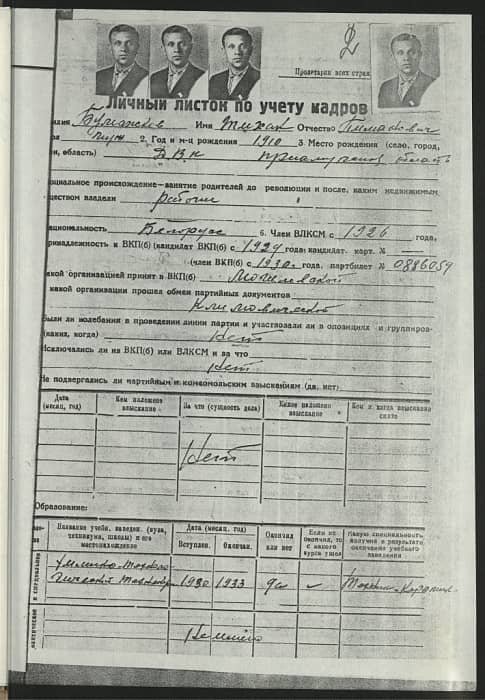 Пролетарии всех стран
Личный листок по учету кадров
Имя Тихон Отчество
2. Год и м-ц рождения 1910 3. Место рождения (село, город,
он, область) ДВК область
оциальное происхождение—занятие родителей до революции и после, каким недвижимым
ществом владели рабочий
ациональность Белорус 6. Член ВЛКСМ с 1926 года,
ринадлежность к ВКП(б) (кандидат ВКП(б) с 1929 года: кандидат. карт. №
(член ВКП(б) с 1930 г. года, партбилет № 0886059
акой организацией принят в ВКП(б) Могилевской
какой организации прошел обмен партийных документов
Климовической
Были ли колебания в проведении линии партии и участвовали ли в оппозициях и группиров-
(каких, когда) Нет
Исключались ли из ВКП(б) или ВЛКСМ и за что
Нет
Не подвергались ли партийным и комсомольским взысканиям (да, нет)
Дата (месяц, год) Кем наложено взыскание За что (сущность дела) Какое наложено взыскание Кем и когда взыскание снято
Нет
Образование:
Название учебн. заведен. (вуза, техникума, школы) и его местонахождение Дата (месяц, год) Вступлен. Окончан. Окончил или нет Если не окончил, то с какого курса ушел Какую специальность получил в результате окончания учебного заведения
1930 1933 да